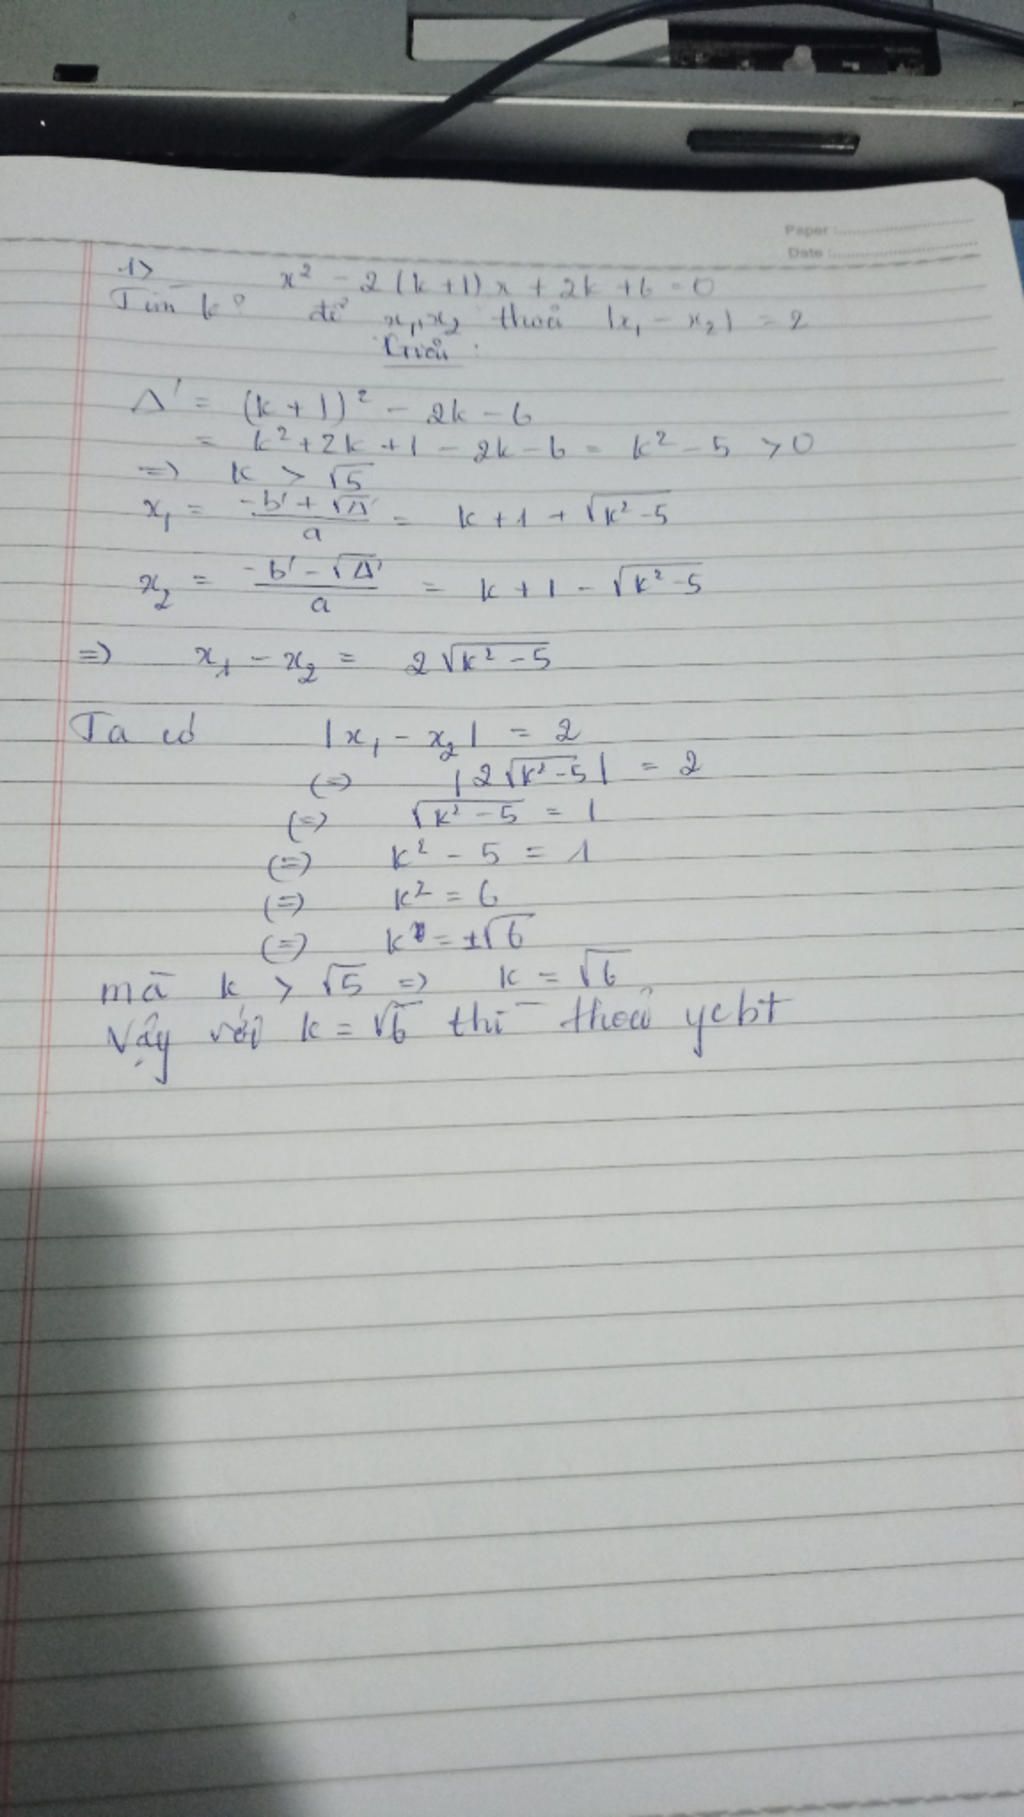 Paper :
Date :
1>
x² - 2(k+1)x + 2k + 6 = 0
Tìm k? để x₁, x₂ thoả |x₁ - x₂| = 2
Giải :
Δ' = (k+1)² - 2k - 6
= k² + 2k + 1 - 2k - 6 = k² - 5 > 0
=> k > √5
x₁ = (-b' + √Δ')/a = k + 1 + √(k² - 5)
x₂ = (-b' - √Δ')/a = k + 1 - √(k² - 5)
=> x₁ - x₂ = 2√(k² - 5)
Ta có |x₁ - x₂| = 2
(=) |2√(k² - 5)| = 2
(=) √(k² - 5) = 1
(=) k² - 5 = 1
(=) k² = 6
(=) k = ±√6
mà k > √5 => k = √6
Vậy với k = √6 thì thoả ycbt